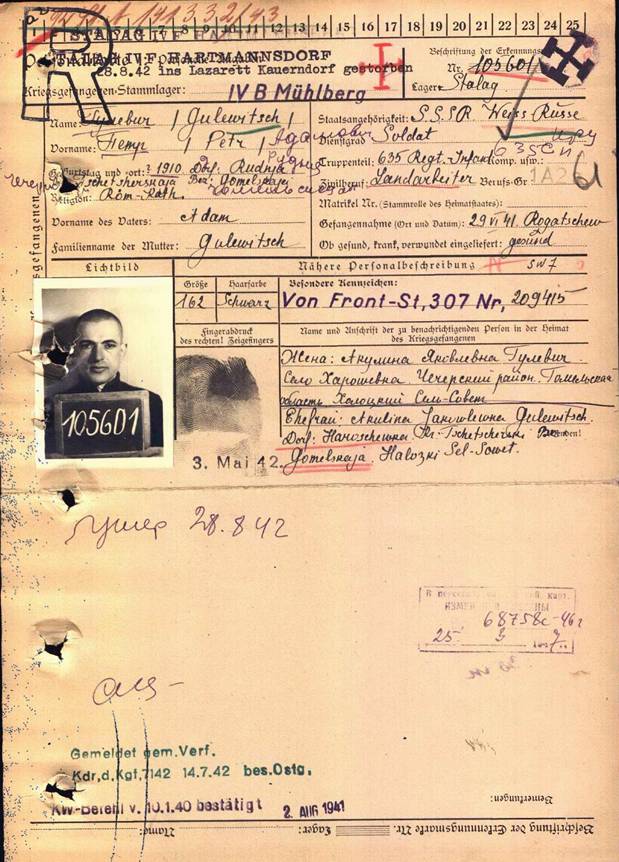 8 9 10 11 12 13 14 15 16 17 18 19 20 21 22 23 24 25
STALAG IV F HARTMANNSDORF
28.8.42 ins Lazarett Kauerndorf gestorben
Kriegsgefangenen-Stammlager: IV B Mühlberg
Beschriftung der Erkennungs
Nr. 105601
Lager: Stalag
Name: Гулевич / Gulewitsch /
Vorname: Петр / Petr / Адамович
Geburtstag und -ort: 1910 Dorf Rudnja Рудня
Tschetscherskaja Bez. Gomelskaja
Religion: Röm-Kath.
Vorname des Vaters: Adam
Familienname der Mutter: Gulewitsch
Staatsangehörigkeit: S.S.S.R. Weiss Russe
Dienstgrad: Soldat
Truppenteil: 635 Regt. Infant Komp. usw.: 635 СП
Zivilberuf: Landarbeiter Berufs-Gr.: 1A2
Matrikel Nr. (Stammrolle des Heimatstaates):
Gefangennahme (Ort und Datum): 29 VI 41 Rogatschew
Ob gesund, krank, verwundet eingeliefert: gesund
Lichtbild
Nähere Personalbeschreibung
Größe Haarfarbe Besondere Kennzeichen:
162 Schwarz Von Front-St,307 Nr, 209415
Fingerabdruck
des rechten! Zeigefingers
Name und Anschrift der zu benachrichtigenden Person in der Heimat
des Kriegsgefangenen
Жена: Акулина Яковлевна Гулевич.
Село Харошевка. Чечерский район. Гомельская
область Халоцкий Сель-Совет
Ehefrau: Akulina Jakowlewna Gulewitsch.
Dorf: Haroschewka Kr. Tschetscherski
Gomelskaja, Halozki Sel-Sowet.
105601
3. Mai 42.
умер 28.8.42
68758с-46г
25 3
Gemeldet gem.Verf.
Kdr,d,Kgf,7142 14.7.42 bes.Ostg.
KW-Befehl v. 10.1.40 bestätigt 2. AUG 1941
Bemerkungen:
Beschriftung der Erkennungsmarke Nr. Lager: Name: